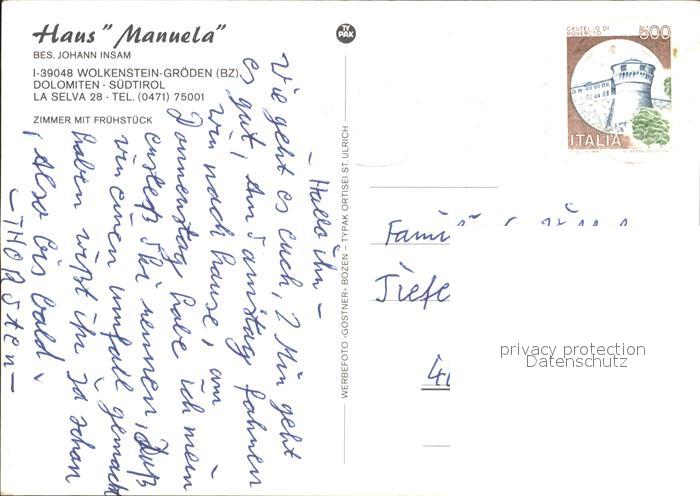 Haus "Manuela"
BES. JOHANN INSAM
I-39048 WOLKENSTEIN-GRÖDEN (BZ)
DOLOMITEN - SÜDTIROL
LA SELVA 28 - TEL. (0471) 75001
ZIMMER MIT FRÜHSTÜCK
- Hallo ihr -
Wie geht es euch, 2 Mir geht
es gut, Am Samstag fahren
wir nach hause, am
Donnerstag habe ich mein
erstes Ski rennen, Daß
wir einen umfall gemacht
haben wißt ihr ja schon
, Also bis bald.
- THORSten -
TY
PAK
WERBEFOTO - GOSTNER - BOZEN - TYPAK ORTISEI ST. ULRICH
CASTELLO DI
ROVERETO
500
ITALIA
Famil
Tiefe
privacy protection
Datenschutz